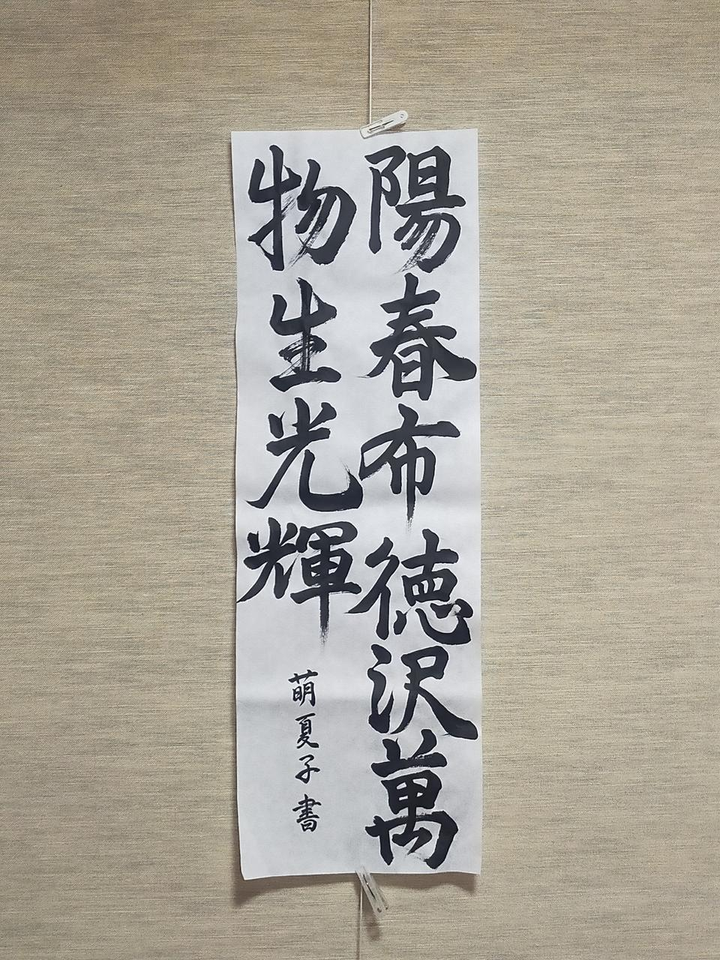 陽春布徳沢萬
物生光輝
萌夏子書